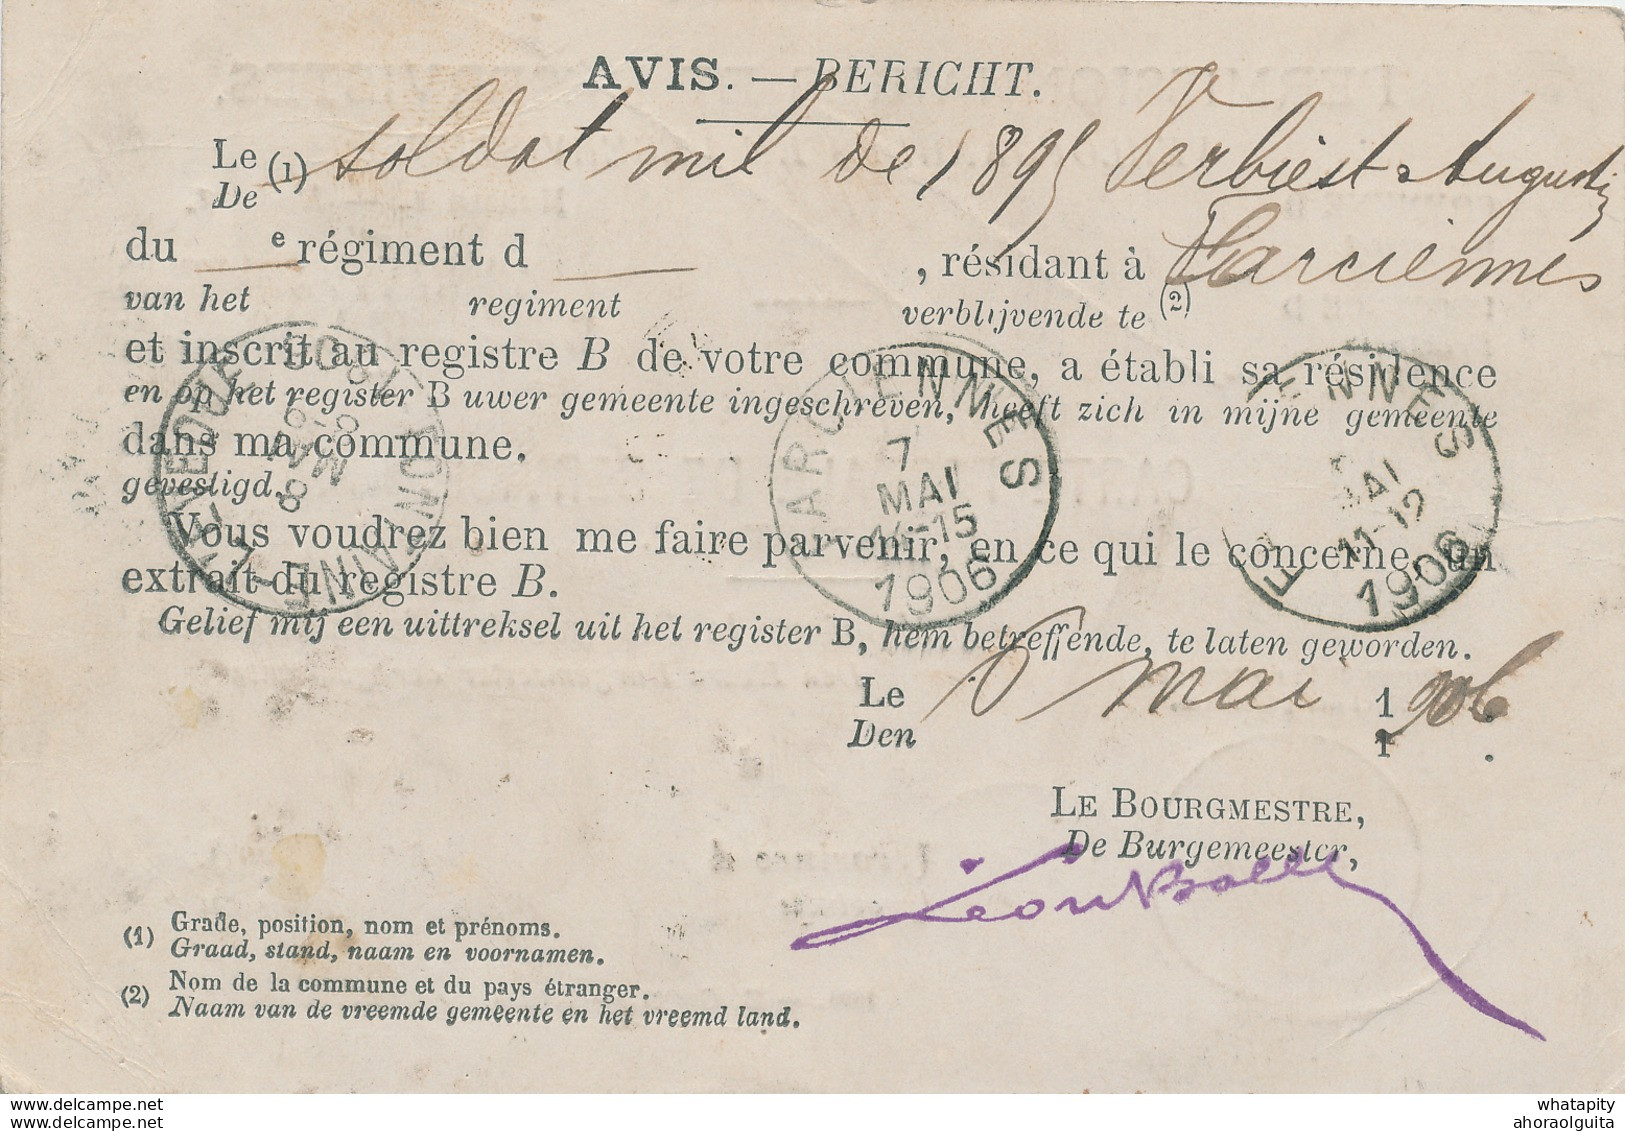 AVIS. — BERICHT.
Le (1) soldat mil de 1895 Verbiest Augustin
De
du e régiment d , résidant à Farciennes
van het regiment verblijvende te (2)
et inscrit au registre B de votre commune, a établi sa résidence
en op het register B uwer gemeente ingeschreven, heeft zich in mijne gemeente
dans ma commune.
gevestigd.
Vous voudrez bien me faire parvenir, en ce qui le concerne, un
extrait du registre B.
Gelief mij een uittreksel uit het register B, hem betreffende, te laten geworden.
Le mai 1906
Den 1 .
LE BOURGMESTRE,
De Burgemeester,
(1) Grade, position, nom et prénoms.
Graad, stand, naam en voornamen.
(2) Nom de la commune et du pays étranger.
Naam van de vreemde gemeente en het vreemd land.
ARCIENNES
7
MAI
14-15
1906
F ENNES
MAI
11-12
1906
whatapity
ahoraolguita